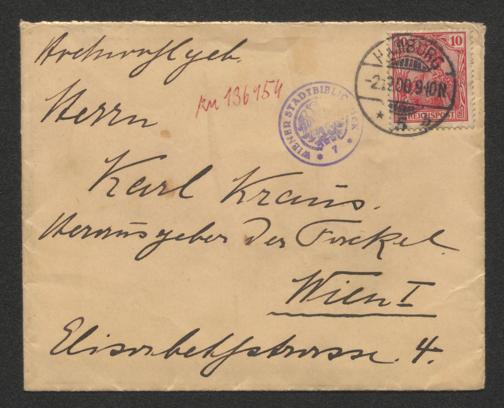 Hochwohlgeb.
KN 136954
Herrn
Karl Kraus.
Herausgeber der Fackel.
Wien I
Elisabethstrasse 4.
HAMBURG
5 2
10
REICHSPOST
WIENER STADTBIBLIOTHEK
7